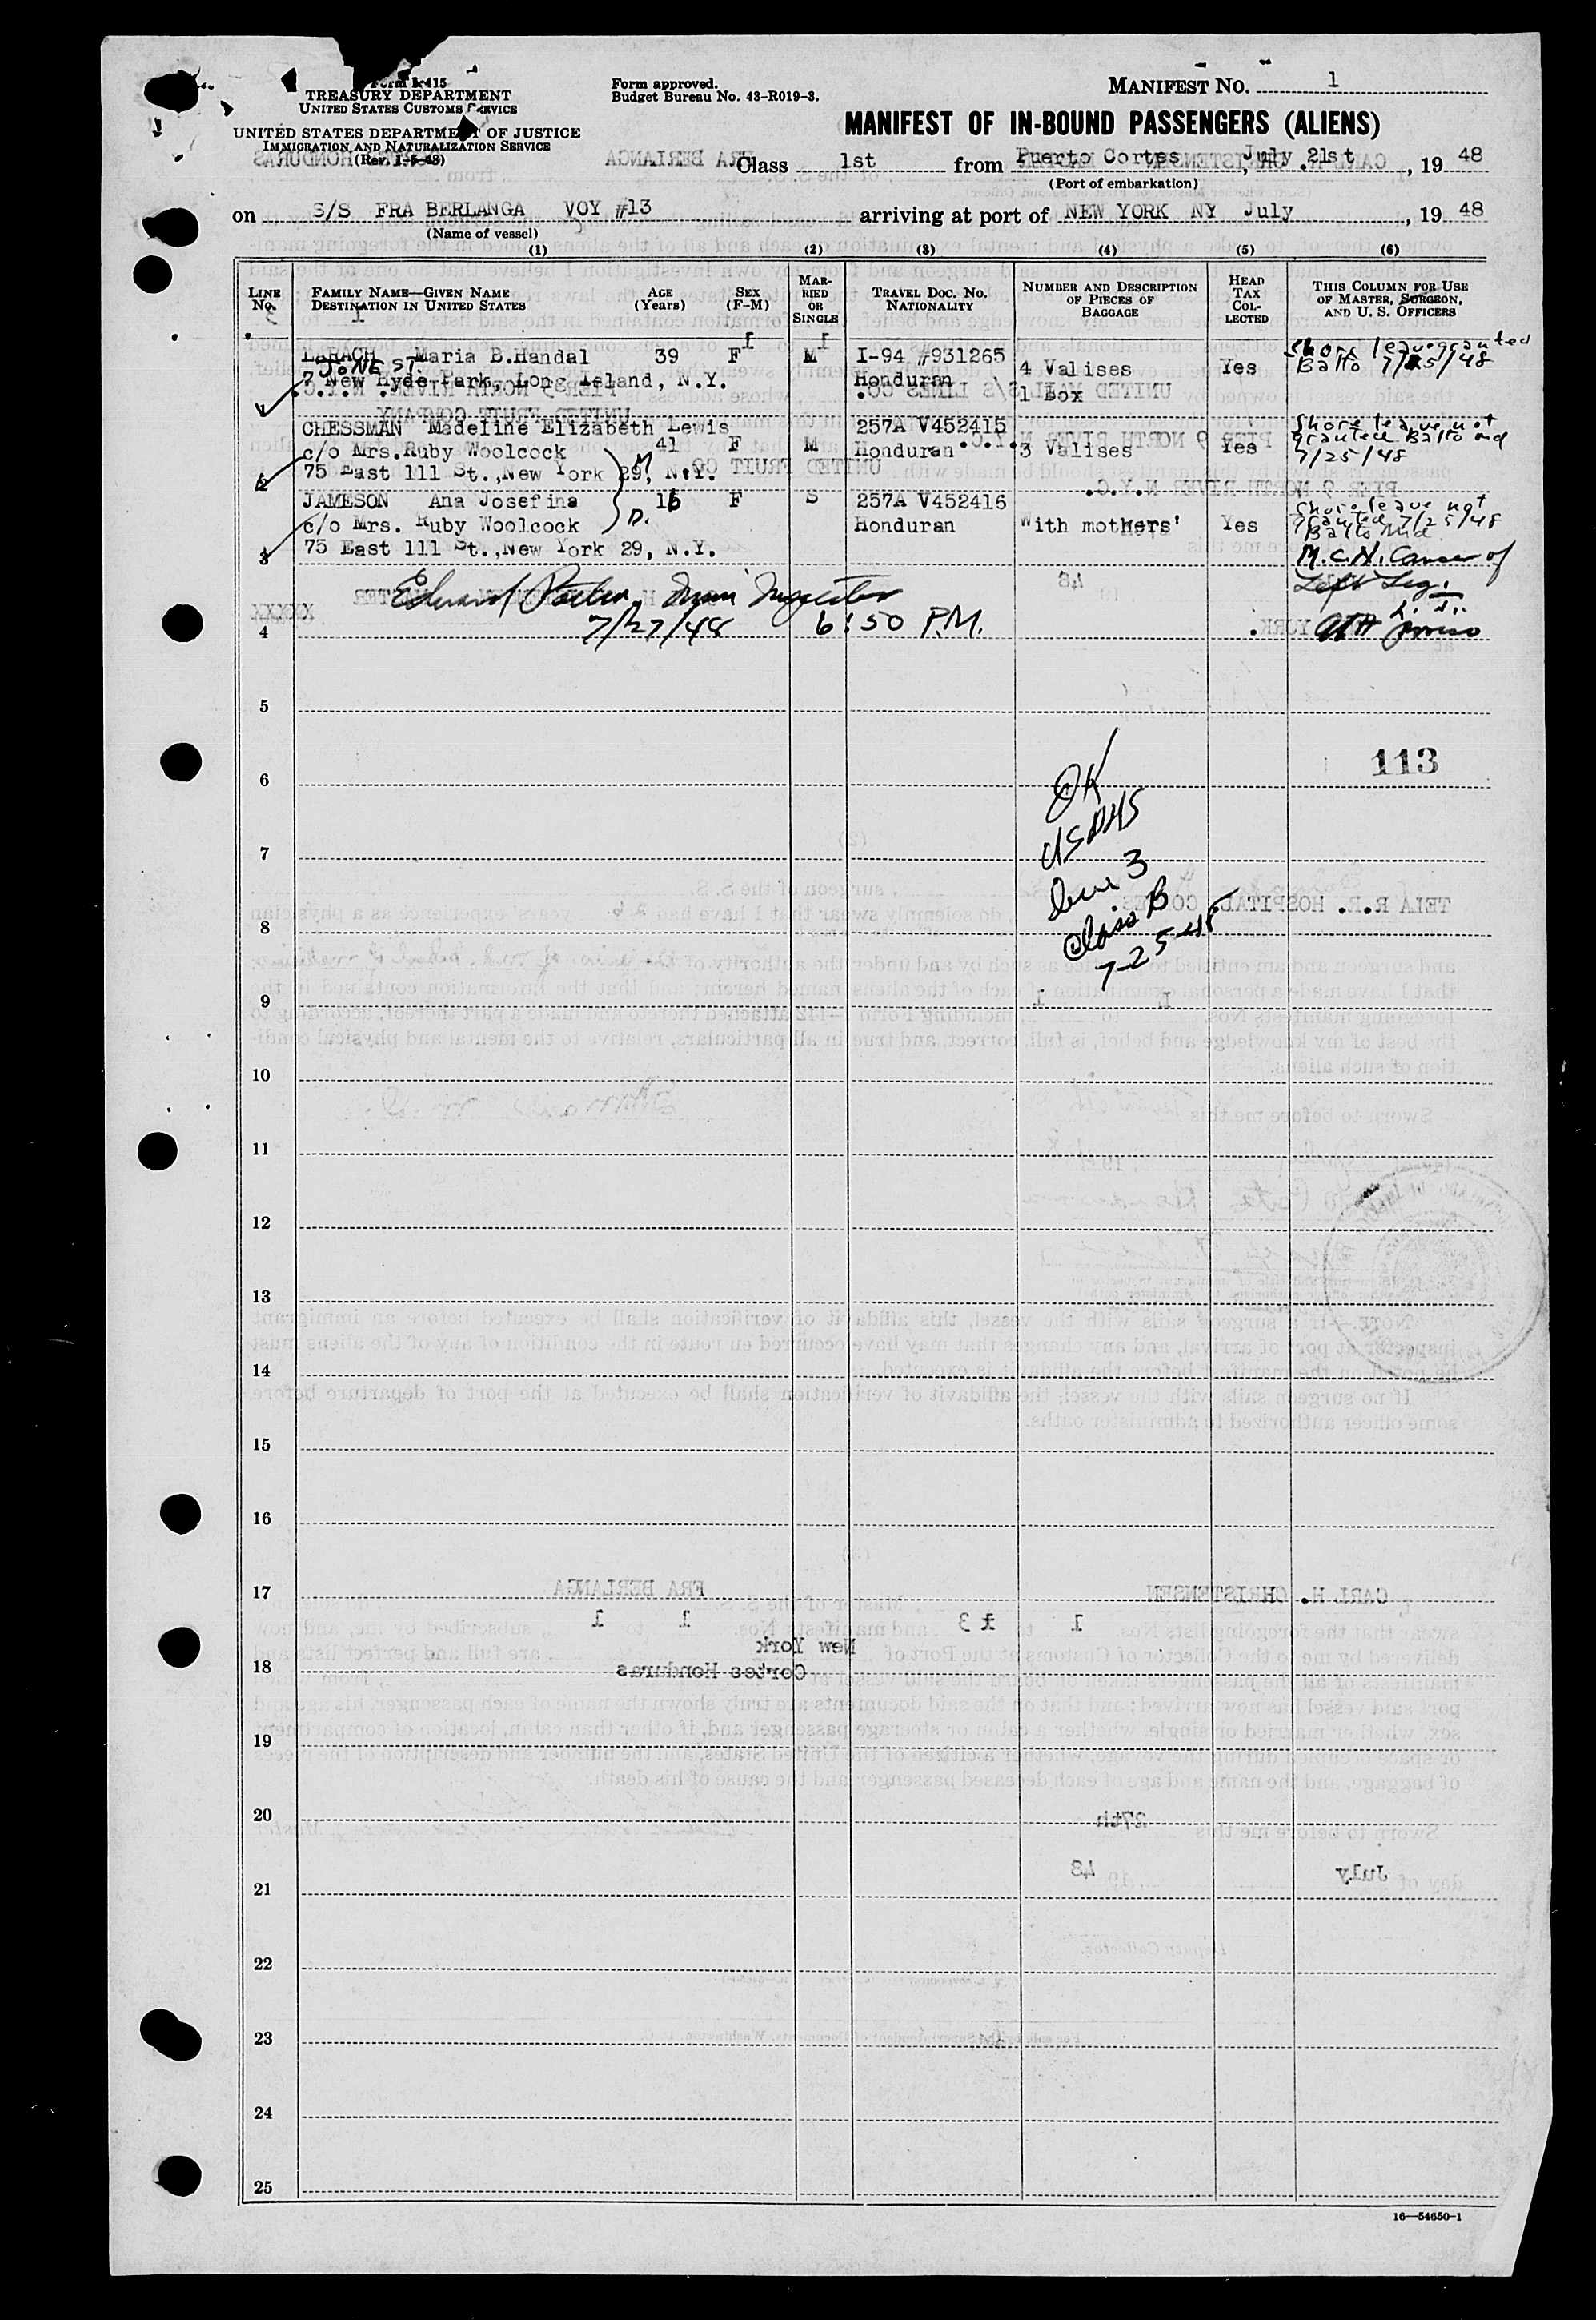 Form I-415
TREASURY DEPARTMENT
UNITED STATES CUSTOMS SERVICE
UNITED STATES DEPARTMENT OF JUSTICE
IMMIGRATION AND NATURALIZATION SERVICE
(Rev. 1-5-48)
Form approved.
Budget Bureau No. 43-R019-3.
MANIFEST NO. 1
MANIFEST OF IN-BOUND PASSENGERS (ALIENS)
Class 1st from Puerto Cortes, July 21st, 19 48
(Port of embarkation)
on S/S FRA BERLANGA VOY #13 arriving at port of NEW YORK NY July, 19 48
(Name of vessel)
(1) (2) (3) (4) (5) (6)
LINE No. FAMILY NAME—GIVEN NAME DESTINATION IN UNITED STATES AGE (Years) SEX (F-M) MARRIED OR SINGLE TRAVEL DOC. NO. NATIONALITY NUMBER AND DESCRIPTION OF PIECES OF BAGGAGE HEAD TAX COLLECTED THIS COLUMN FOR USE OF MASTER, SURGEON, AND U. S. OFFICERS
LARACH Maria B.Handal 39 F M I-94 #931265 4 Valises Yes Shore leave granted
JONE ST. Balto 7/25/48
7 New Hyde Park, Long Island, N.Y. Honduran 1 Box
1
CHESSMAN Madeline Elizabeth Lewis 257A V452415 Shore leave not
c/o Mrs.Ruby Woolcock 41 F M Honduran 3 Valises Yes granted Balto md
75 East 111 St.,New York 29, N.Y. M 7/25/48
2
JAMESON Ana Josefina 16 F S 257A V452416 Shore leave not
c/o Mrs. Ruby Woolcock D. Honduran With mothers' Yes granted 7/25/48
75 East 111 St.,New York 29, N.Y. Balto Md.
3
M.C.H. Cancer of
Left Leg.
Edward Inspector
7/27/48 6:50 P.M.
4
5
113
6
OK
USPHS
7
line 3
Class B
8
7-25-48
9
10
11
12
13
14
15
16
17
18
19
20
21
22
23
24
25
16—54650-1